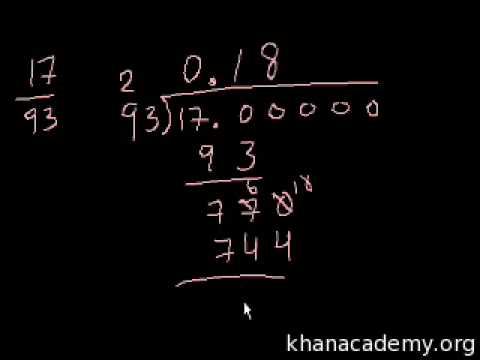 17 2 0.18
93 93)17.00000
93
6
770 10
744
khanacademy.org